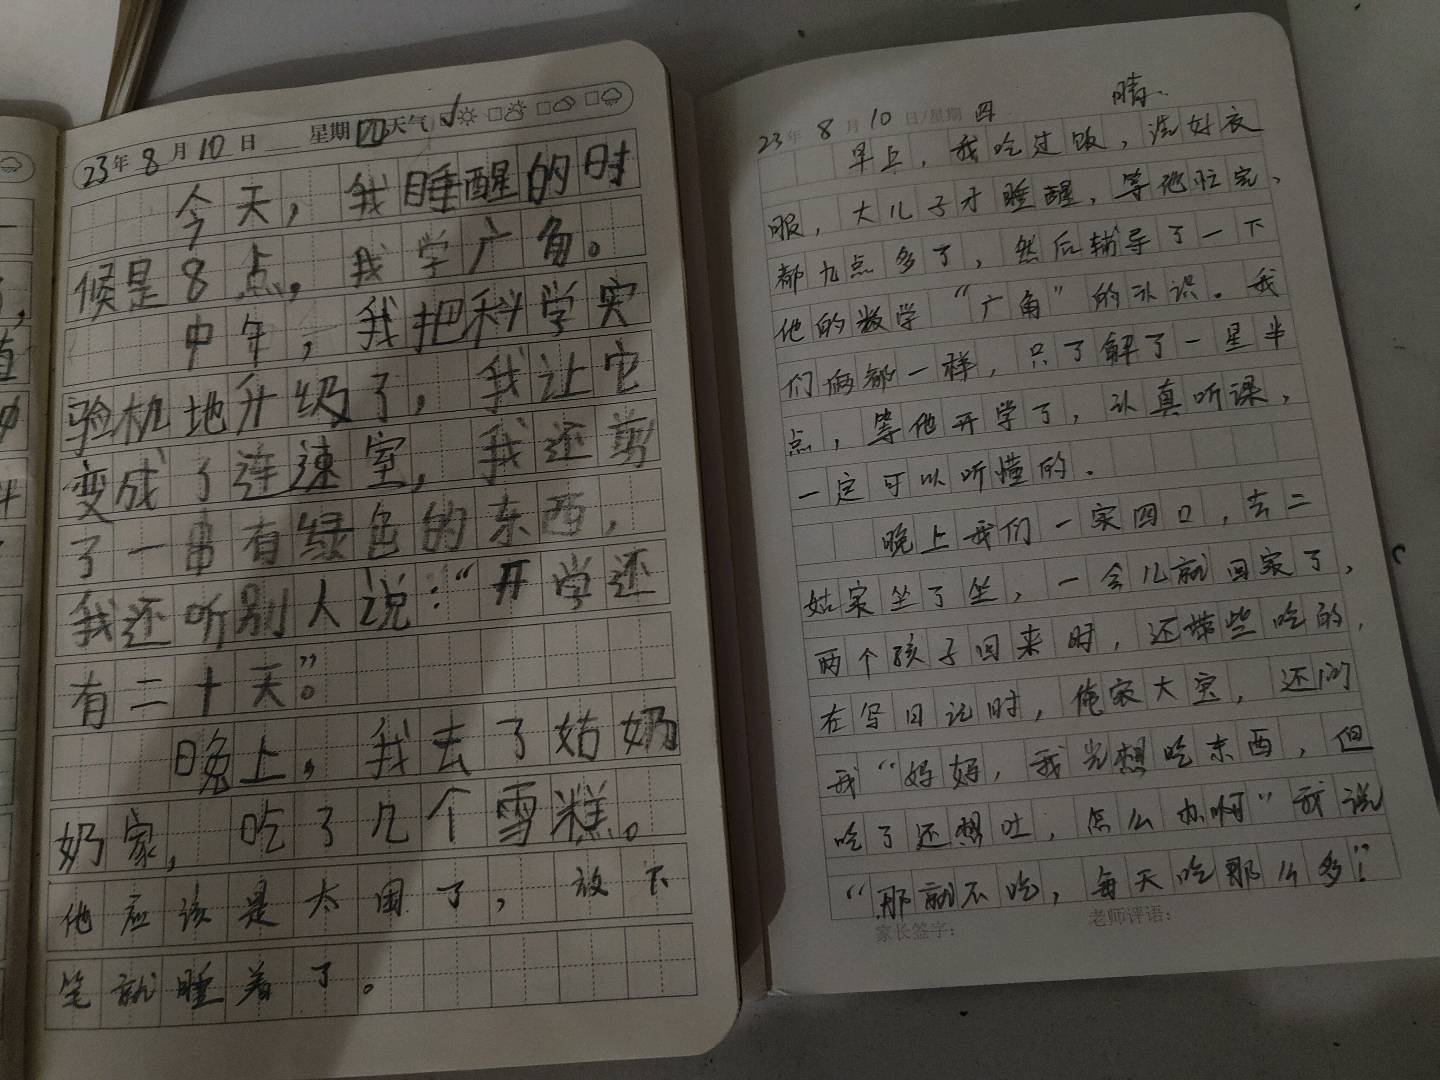 23年8月10日 星期四 天气
今天，我睡醒的时
候是8点，我学广角。
中午，我把科学实
验机地升级了，我让它
变成了连速室，我还剪
了一串有绿色的东西，
我还听别人说：“开学还
有二十天”。
晚上，我去了姑奶
奶家，吃了几个雪糕。
他应该是太困了，放下
笔就睡着了。
23年8月10日/星期四 晴.
早上，我吃过饭，洗好衣
服，大儿子才睡醒，等他忙完、
都九点多了，然后辅导了一下
他的数学“广角”的认识。我
们俩都一样，只了解了一星半
点，等他开学了，认真听课，
一定可以听懂的.
晚上我们一家四口，去二
姑家坐了坐，一会儿就回家了，
两个孩子回来时，还带些吃的，
在写日记时，俺家大宝，还问
我“妈妈，我光想吃东西，但
吃了还想吐，怎么办啊”我说
“那就不吃，每天吃那么多！”
家长签字：
老师评语：